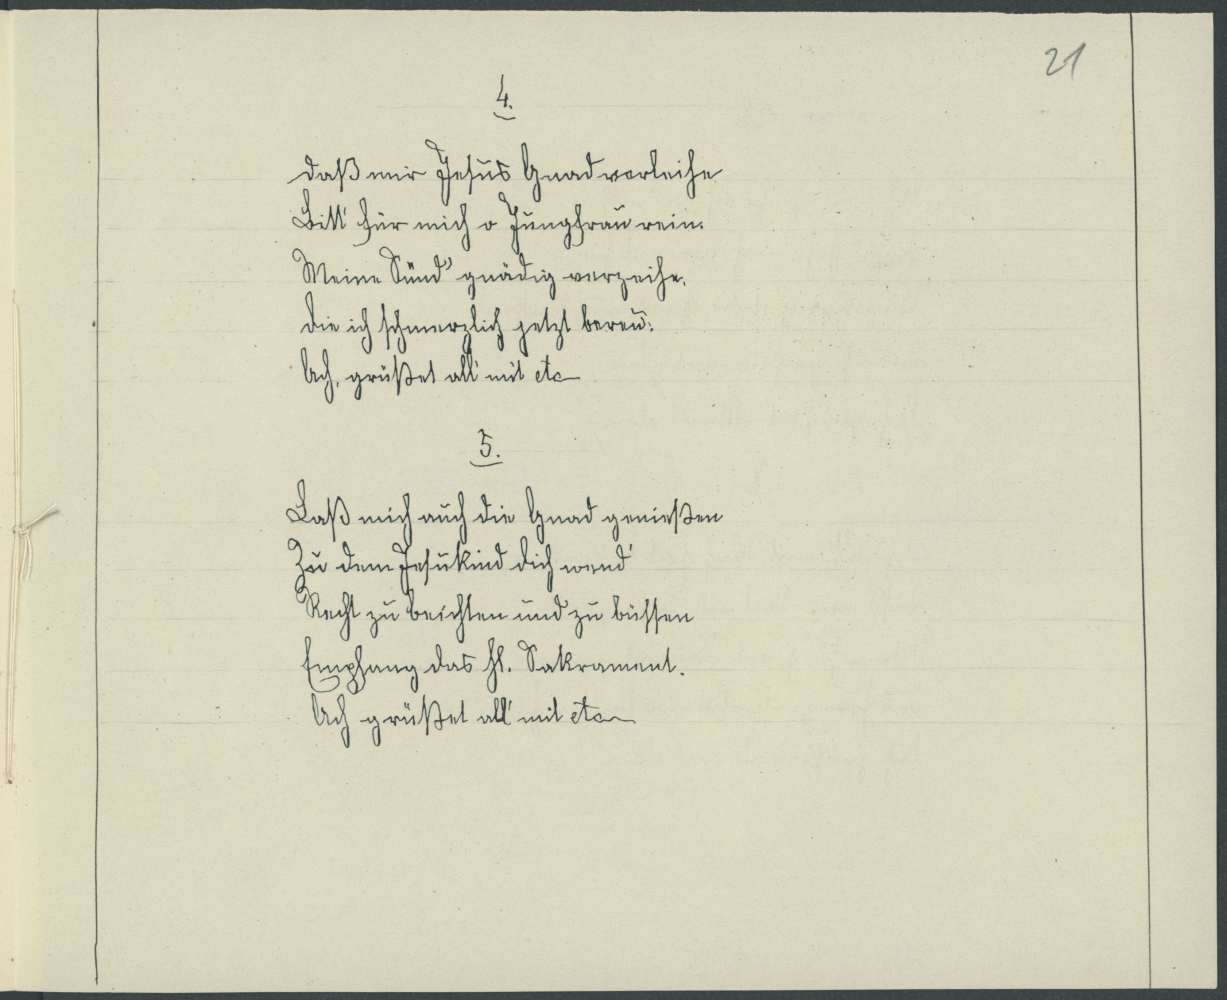 21
4.
daß mir Jesus Gnad verleihe
Bitt' für mich o Jungfrau rein.
Meine Sünd' gnädig verzeihe,
die ich schmerzlich jetzt bereu.
Ach, grüßet all' mit etc
5.
Laß mich auch die Gnad genießen
Zu dem Jesukind dich wend'
Recht zu beichten und zu büssen
Empfang das hl. Sakrament.
Ach grüßet all' mit etc